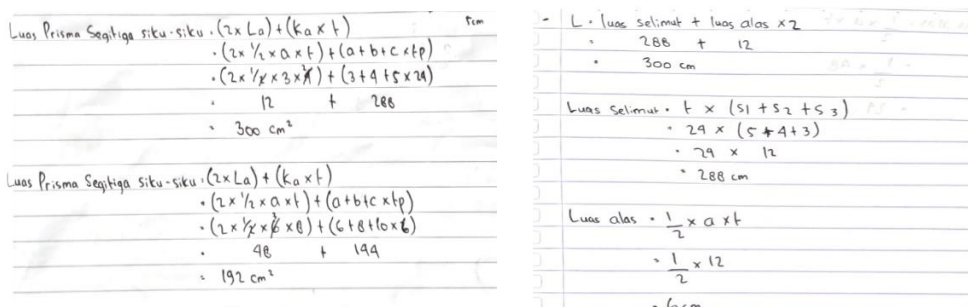 Luas Prisma Segitiga siku-siku = (2x La) + (Ka x t)
= (2x 1/2 x a x t) + (a+b+c x tp)
= (2x 1/2 x 3 x 4) + (3+4+5 x 24)
= 12 + 288
= 300 cm²
Luas Prisma Segitiga siku-siku = (2x La) + (Ka x t)
= (2x 1/2 x a x t) + (a+b+c x tp)
= (2x 1/2 x 6 x 8) + (6+8+10 x 6)
= 48 + 144
= 192 cm²
5cm
- L = luas selimut + luas alas x2
= 288 + 12
= 300 cm
Luas selimut = t x (s1 + s2 + s3)
= 24 x (5+4+3)
= 24 x 12
= 288 cm
Luas alas = 1/2 x a x t
= 1/2 x 12
= 6 cm